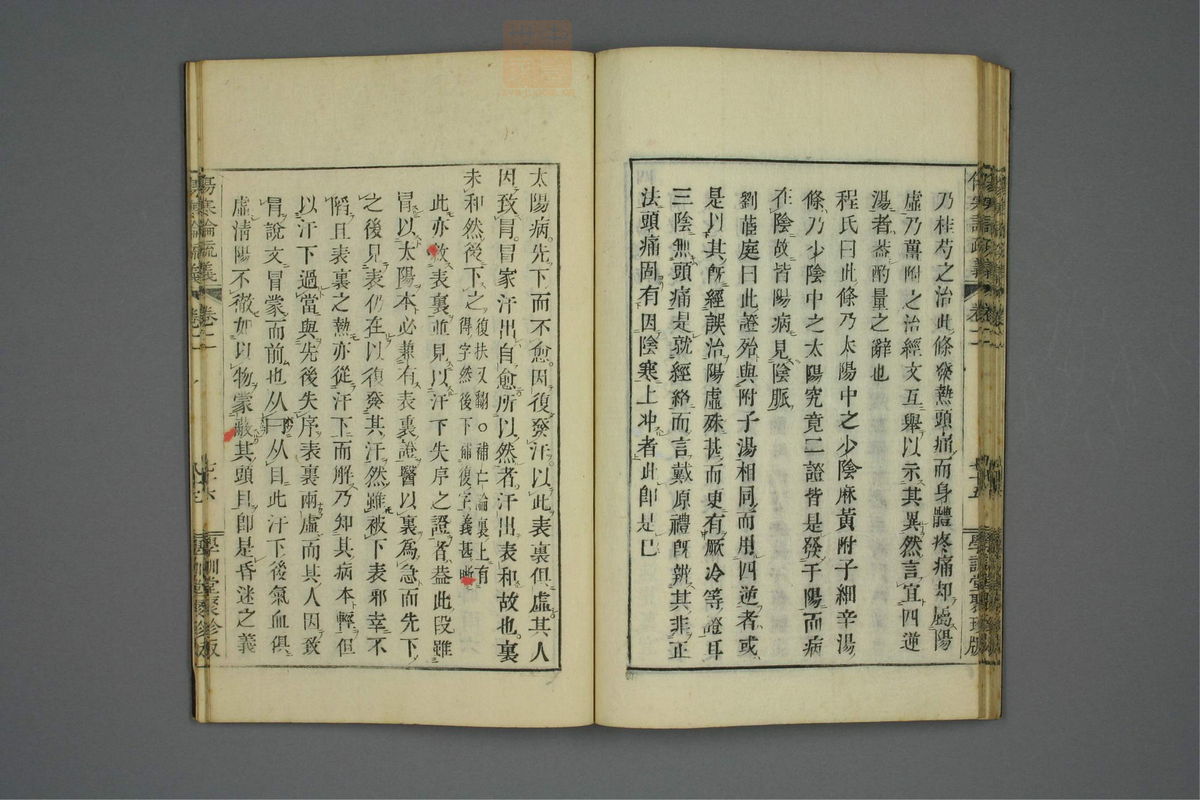 乃桂芍之治此條發熱頭痛而身體疼痛却屬陽
虛乃薑附之治經文互舉以示其異然言宜四逆
湯者葢酌量之辭也
程氏曰此條乃太陽中之少陰麻黃附子細辛湯
條乃少陰中之太陽究竟二證皆是發于陽而病
在陰故皆陽病見陰脈
劉蓲庭曰此證殆與附子湯相同而用四逆者或
是以其旣經誤治陽虛殊甚而更有厥冷等證耳
三陰無頭痛是就經絡而言戴原禮旣辨其非正
法頭痛固有因陰寒上冲者此卽是已
太陽病先下而不愈因復發汗以此表裏但虛其人
因致冐冐家汗出自愈所以然者汗出表和故也裏
未和然後下之
復扶又翻○補亡論裏上有
得字然後下補復字義甚晰
此亦救表裏並見以汗下失序之證者葢此段雖
冐以太陽本必兼有表裏證醫以裏為急而先下
之後見表仍在以復發其汗然雖被下表邪幸不
陷且表裏之熱亦從汗下而解乃知其病本輕但
以汗下過當與先後失序表裏兩虛而其人因致
冐說文冒蒙而前也从冃从目此汗下後氣血俱
虛清陽不徹如以物蒙蔽其頭目卽是昏迷之義
傷寒論疏義 卷二 學訓堂聚珍版